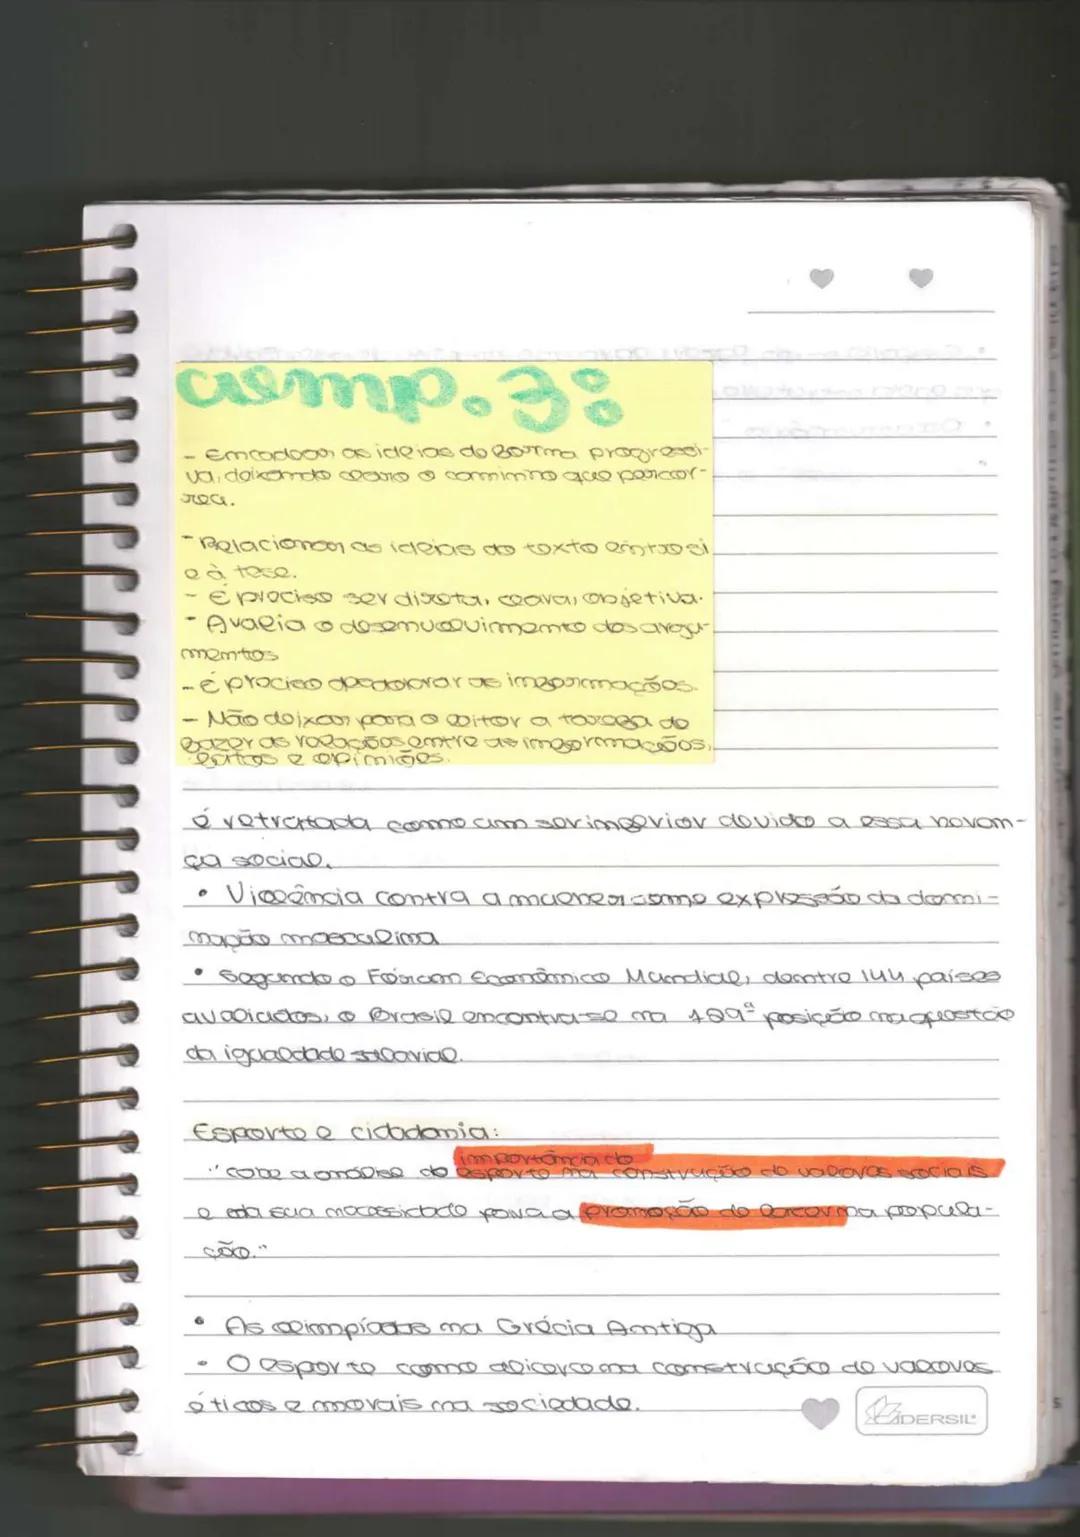 comp. 3:
- Encadear as ideias de forma progressi-
va, deixando claro o caminho que percor-
reu.
- Relacionar as ideias do texto entre si
e à tese.
- É preciso ser direta, clara, objetiva.
- Avalia o desenvolvimento dos argu-
mentos
- é preciso as informações.
- Não deixar para o leitor a tarefa de
fazer as relações entre as informações,
fatos e opiniões.
é retratada como um ser inferior devido a essa heran-
ça social.
• Violência contra a mulher como expressão da domi-
nação masculina
• Segundo o Fórum Econômico Mundial, dentre 144 países
avaliados, o Brasil encontra-se na posição na questão
da igualdade salarial.
Esporte e cidadania:
importância do
"cabe a análise do esporte na construção de valores sociais
e da sua necessidade para a promoção de lazer na popula-
ção."
• As olimpíadas na Grécia Antiga
• O esporte como alicerce na construção de valores
éticos e morais na sociedade.
DERSIL